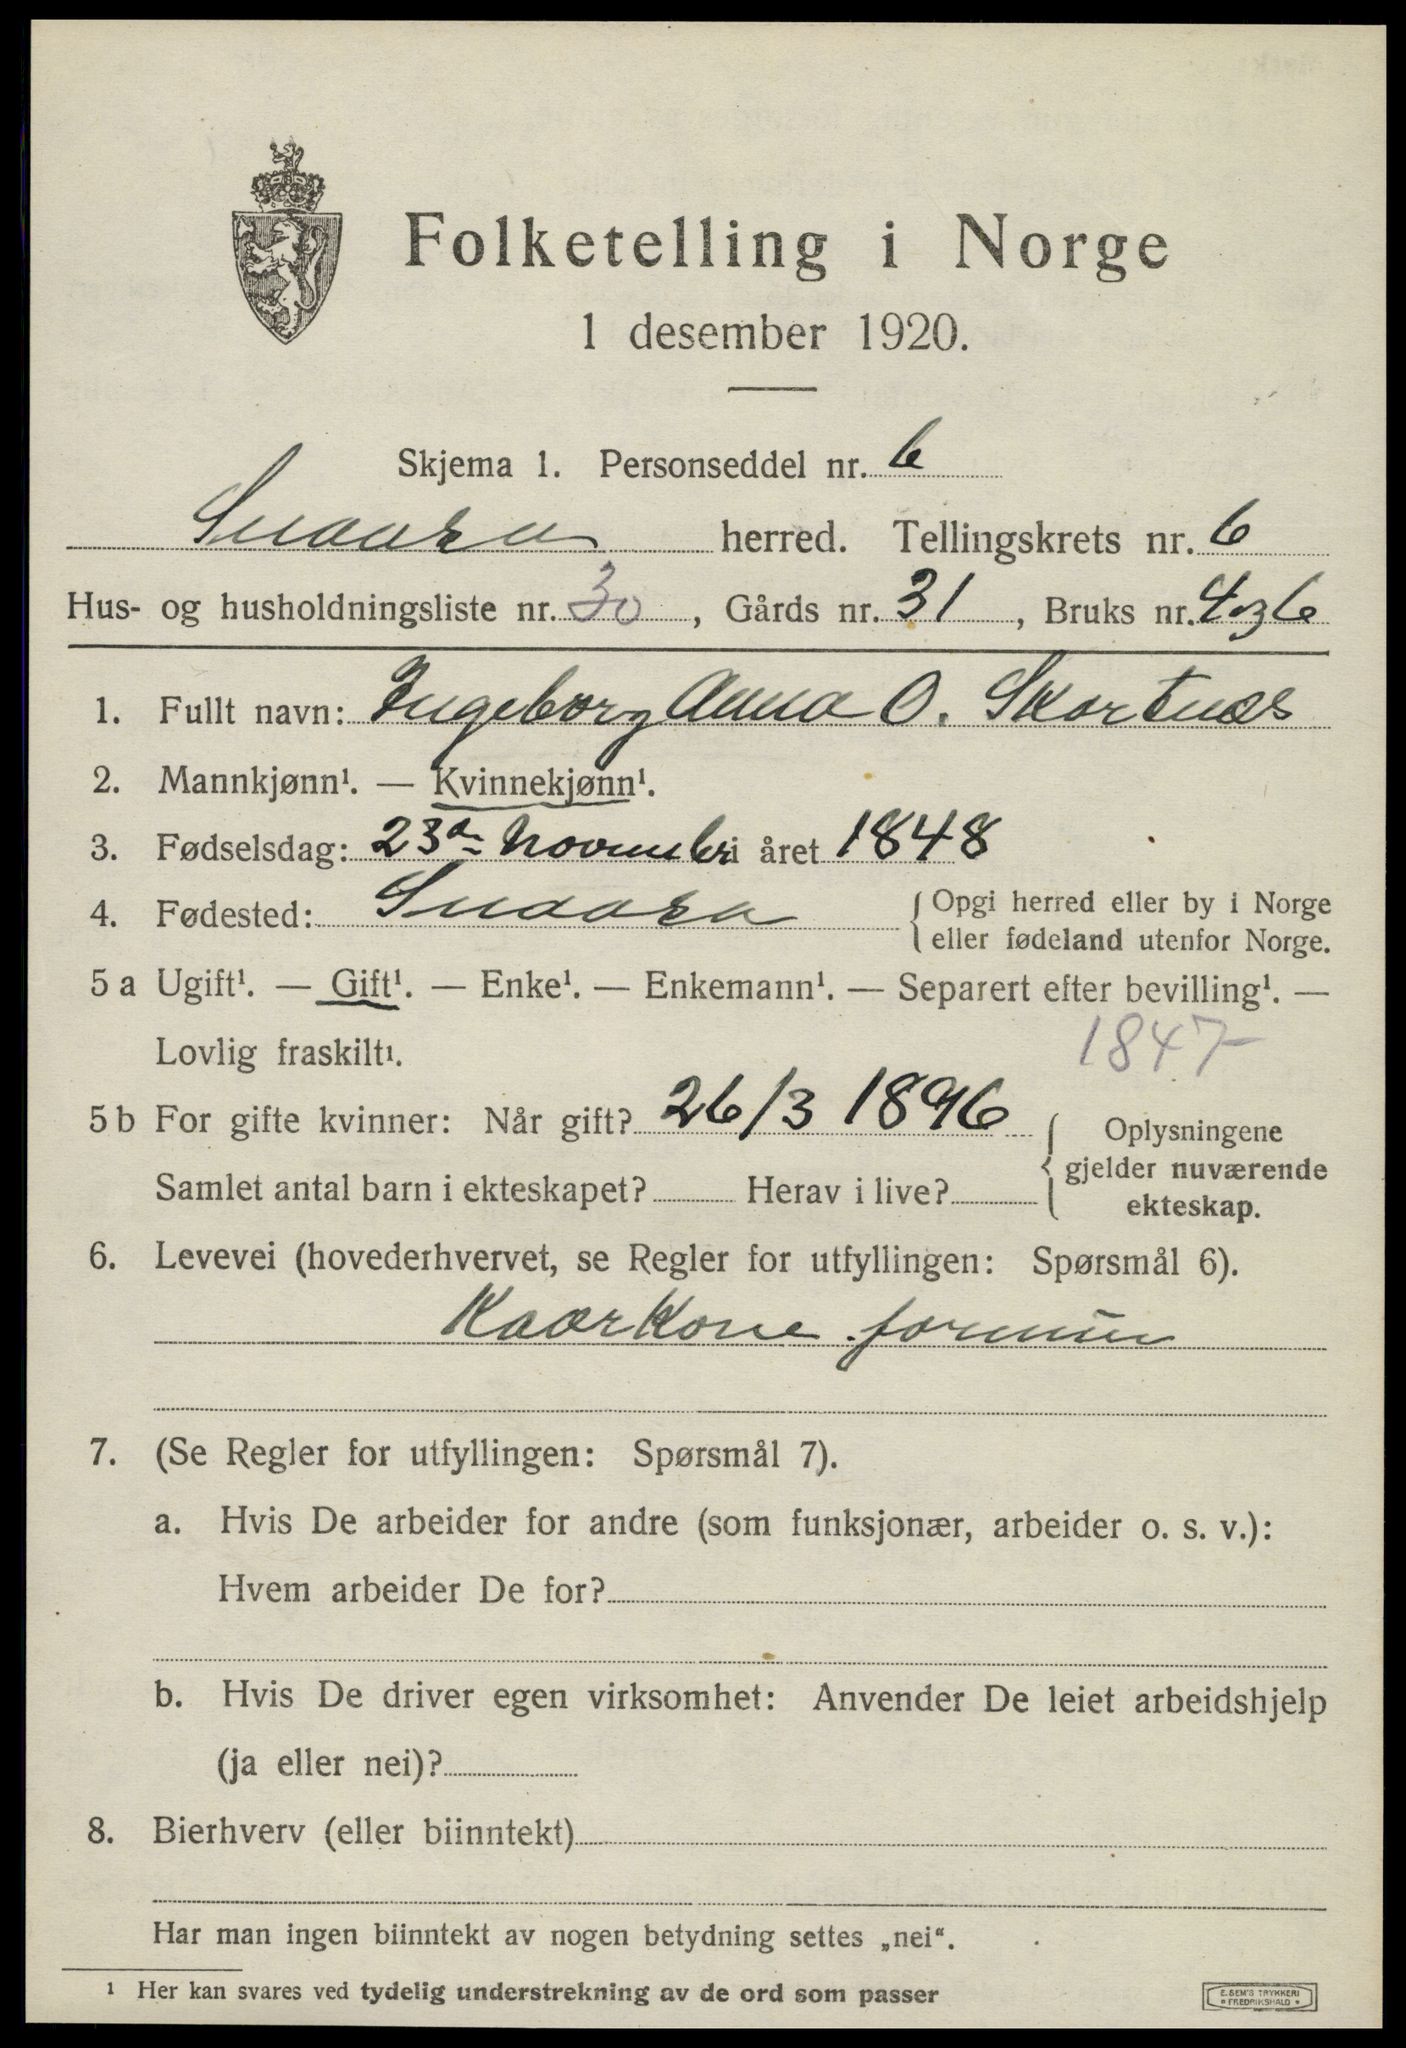 Folketelling i Norge
1 desember 1920.
Skjema 1. Personseddel nr. 6
Snaasa herred. Tellingskrets nr. 6
Hus- og husholdningsliste nr. 30, Gårds nr. 31, Bruks nr. 4 og 6
1. Fullt navn: Ingeborg Anna O. Skartnes
2. Mannkjønn¹. — Kvinnekjønn¹.
3. Fødselsdag: 23de November i året 1848
4. Fødested: Snaasa { Opgi herred eller by i Norge
eller fødeland utenfor Norge.
5 a Ugift¹. — Gift¹. — Enke¹. — Enkemann¹. — Separert efter bevilling¹. —
Lovlig fraskilt¹. 1847
5 b For gifte kvinner: Når gift? 26/3 1896 { Oplysningene
gjelder nuværende
Samlet antal barn i ekteskapet? Herav i live?
ekteskap.
6. Levevei (hovederhvervet, se Regler for utfyllingen: Spørsmål 6).
Kaarkone
7. (Se Regler for utfyllingen: Spørsmål 7).
a. Hvis De arbeider for andre (som funksjonær, arbeider o. s. v.):
Hvem arbeider De for?
b. Hvis De driver egen virksomhet: Anvender De leiet arbeidshjelp
(ja eller nei)?
8. Bierhverv (eller biinntekt)
Har man ingen biinntekt av nogen betydning settes „nei“.
¹ Her kan svares ved tydelig understrekning av de ord som passer
E. SEM'S TRYKKERI
* FREDRIKSHALD *